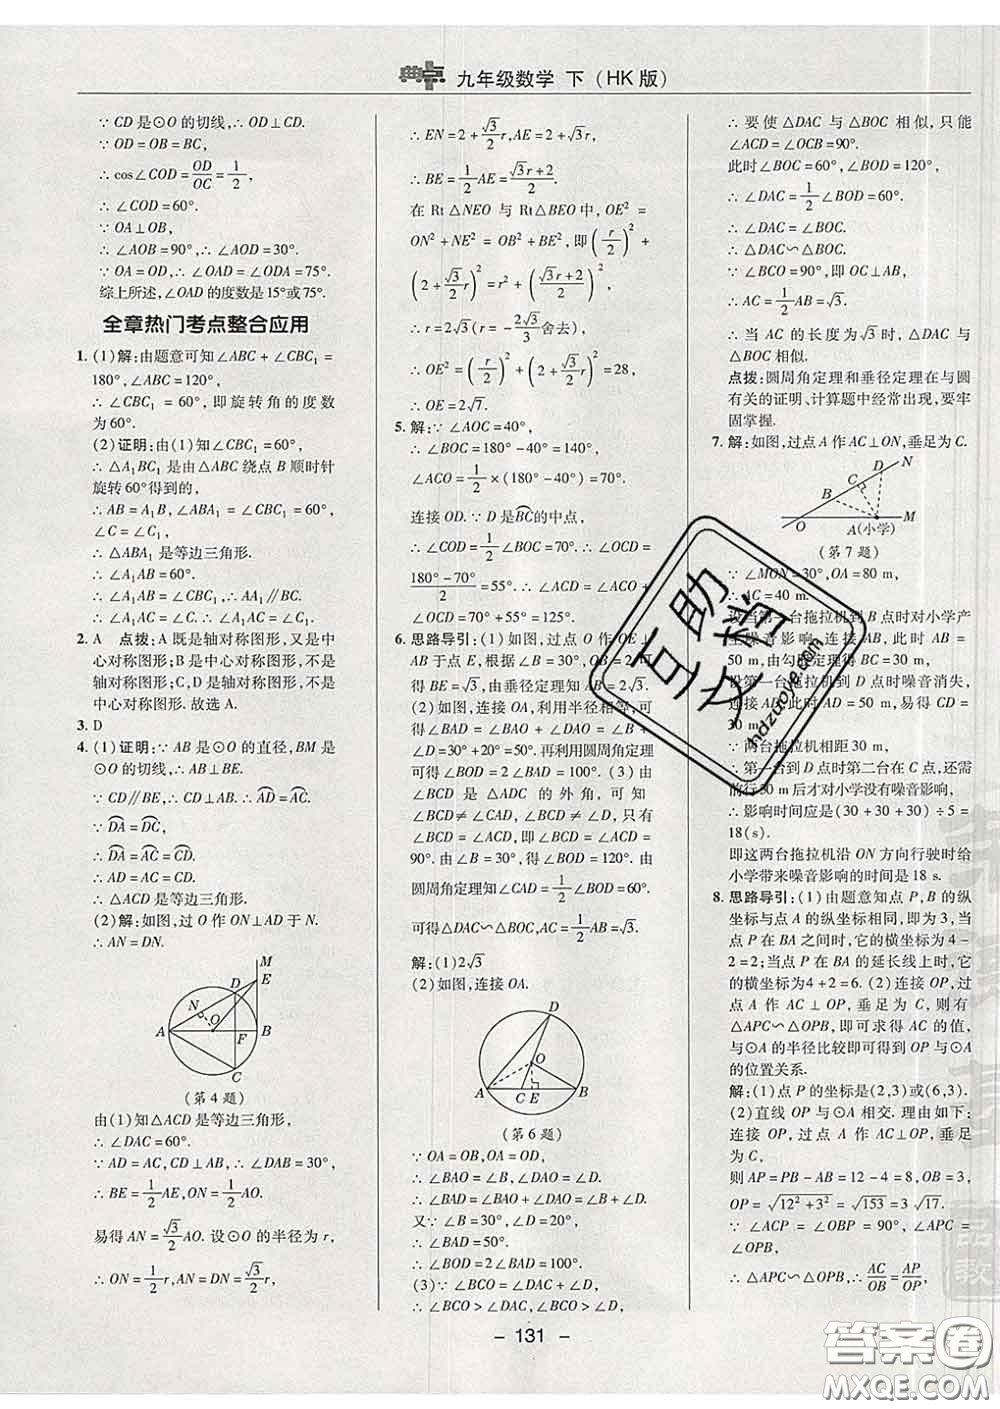 典点 九年级数学 下(HK版)
∵CD是⊙O的切线,∴OD⊥CD.
∵OD=OB=BC,
∴cos∠COD=OD/OC=1/2,
∴∠COD=60°.
∵OA⊥OB,
∴∠AOB=90°,∴∠AOD=30°.
∵OA=OD,∴∠OAD=∠ODA=75°.
综上所述,∠OAD的度数是15°或75°.
全章热门考点整合应用
1. (1)解:由题意可知∠ABC+∠CBC₁=
180°,∠ABC=120°,
∴∠CBC₁=60°,即旋转角的度数
为60°.
(2)证明:由(1)知∠CBC₁=60°,
∴△A₁BC₁是由△ABC绕点B顺时针
旋转60°得到的,
∴AB=A₁B,∠ABA₁=∠CBC₁=60°,
∠C=∠C₁.
∴△ABA₁是等边三角形.
∴∠A₁AB=60°=∠CBC₁.
∴A₁A∥BC.
∴∠A₁AC=∠C.∴∠A₁AC=∠C₁.
2. A 点拨:A既是轴对称图形,又是中
心对称图形;B是中心对称图形,不是
轴对称图形;C,D是轴对称图形,不是
中心对称图形.故选A.
3. D
4. (1)证明:∵AB是⊙O的直径,BM是
⊙O的切线,∴AB⊥BE.
∵CD∥BE,∴CD⊥AB.∴AD⌒=AC⌒.
∵DA⌒=DC⌒,
∴DA⌒=AC⌒=CD⌒.
∴AD=AC=CD.
∴△ACD是等边三角形.
(2)解:如图,过O作ON⊥AD于N.
∴AN=DN.
M
D
E
N
O
A
F
B
C
(第4题)
由(1)知△ACD是等边三角形,
∴∠DAC=60°.
∵AD=AC,CD⊥AB,∴∠DAB=30°,
∴BE=1/2AE,ON=1/2AO.
易得AN=√3/2AO.设⊙O的半径为r,
∴ON=1/2r,AN=DN=√3/2r,
∴EN=2+√3/2r,AE=2+√3r.
∴BE=1/2AE=(√3r+2)/2.
在Rt△NEO与Rt△BEO中,OE²=
ON²+NE²=OB²+BE²,即(r/2)²+
(2+√3/2r)²=r²+((√3r+2)/2)²,
∴r=2√3(r=-2√3/3舍去),
∴OE²=(r/2)²+(2+√3/2r)²=28,
∴OE=2√7.
5. 解:∵∠AOC=40°,
∴∠BOC=180°-40°=140°,
∠ACO=1/2×(180°-40°)=70°.
连接OD.∵D是BC⌒的中点,
∴∠COD=1/2∠BOC=70°.∴∠OCD=
(180°-70°)/2=55°.∴∠ACD=∠ACO+
∠OCD=70°+55°=125°.
6. 思路导引:(1)如图,过点O作OE⊥
AB于点E,根据∠B=30°,OB=2可
得BE=√3,由垂径定理知AB=2√3.
(2)如图,连接OA,利用半径相等,可
得∠BAD=∠BAO+∠DAO=∠B+
∠D=30°+20°=50°.再利用圆周角定理
可得∠BOD=2∠BAD=100°.(3)可得
∠BCD是△ADC的外角,可知
∠BCD≠∠CAD,∠BCD≠∠D,只有
∠BCD=∠ACD,即∠BCD=∠ACD=
90°.由∠B=30°,得∠BOD=120°.由
圆周角定理知∠CAD=1/2∠BOD=60°.
可得△DAC∽△BOC,AC=1/2AB=√3.
解:(1)2√3
(2)如图,连接OA.
D
O
A
C E
B
(第6题)
∵OA=OB,OA=OD.
∴∠BAO=∠B,∠DAO=∠D.
∴∠BAD=∠BAO+∠DAO=∠B+∠D.
又∵∠B=30°,∠D=20°,
∴∠BAD=50°.
∴∠BOD=2∠BAD=100°.
(3)∵∠BCO=∠DAC+∠D,
∴∠BCO>∠DAC,∠BCO>∠D.
∴要使△DAC与△BOC相似,只能
∠ACD=∠OCB=90°.
此时∠BOC=60°,∠BOD=120°,
∴∠DAC=1/2∠BOD=60°.
∴∠DAC=∠BOC.
∴△DAC∽△BOC.
∵∠BCO=90°,即OC⊥AB,
∴AC=1/2AB=√3.
∴当AC的长度为√3时,△DAC与
△BOC相似.
点拨:圆周角定理和垂径定理在与圆
有关的证明、计算题中经常出现,要牢
固掌握.
7. 解:如图,过点A作AC⊥ON,垂足为C.
N
D
C
B
O
A(小学)
M
(第7题)
∵∠MON=30°,OA=80 m,
∴AC=40 m.
设当第一台拖拉机到B点时对小学产
生噪音影响,连接AB,此时AB=
50 m,由勾股定理得BC=30 m.
设第一台拖拉机到D点时噪音消失,
连接AD,此时AD=50 m,易得CD=
30 m.
∵两台拖拉机相距30 m,
∴第一台到D点时第二台在C点,还需
前行30 m后才对小学没有噪音影响,
∴影响时间应是(30+30+30)÷5=
18(s).
即这两台拖拉机沿ON方向行驶时给
小学带来噪音影响的时间是18 s.
8. 思路导引:(1)由题意知点P,B的纵
坐标与点A的纵坐标相同,即为3,当
点P在BA之间时,它的横坐标为4-
2=2;当点P在BA的延长线上时,它
的横坐标为4+2=6.(2)连接OP,过
点A作AC⊥OP,垂足为C,则有
△APC∽△OPB,即可求得AC的值,
与⊙A的半径比较即可得到OP与⊙A
的位置关系.
解:(1)点P的坐标是(2,3)或(6,3).
(2)直线OP与⊙A相交.理由如下:
连接OP,过点A作AC⊥OP,垂足
为C,
则AP=PB-AB=12-4=8,OB=3,
OP=√(12²+3²)=√153=3√17.
∵∠ACP=∠OBP=90°,∠APC=
∠OPB,
∴△APC∽△OPB,∴AC/OB=AP/OP,
- 131 -
互助文档
hdzuoye.com
答案圈
MXQE.COM